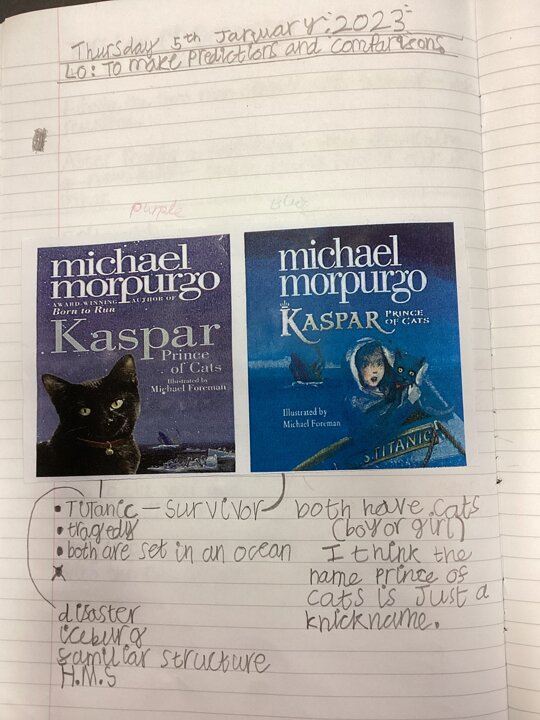 Thursday 5th January 2023
LO: To make predictions and comparisons
purple
blue
michael
morpurgo
AWARD-WINNING AUTHOR OF
Born to Run
Kaspar
Prince
of Cats
Illustrated by
Michael Foreman
michael
morpurgo
KASPAR PRINCE OF CATS
Illustrated by
Michael Foreman
S. TITANIC
• Titanic – survivor
• tragedy
• both are set in an ocean
disaster
iceburg
familiar structure
H.M.S
both have cats
(boy or girl)
I think the
name prince of
cats is Just a
knickname.